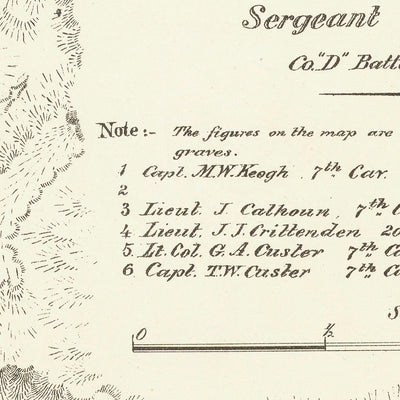 Sergeant
Co. "D" Batt
Note:- The figures on the map are
graves.
1 Capt. M.W. Keogh, 7th Cav.
2
3 Lieut. J. Calhoun, 7th C
4 Lieut. J.J. Crittenden 20
5. Lt. Col. G.A. Custer 7th Ca
6 Capt. T.W. Custer 7th Ca
S
0 ½